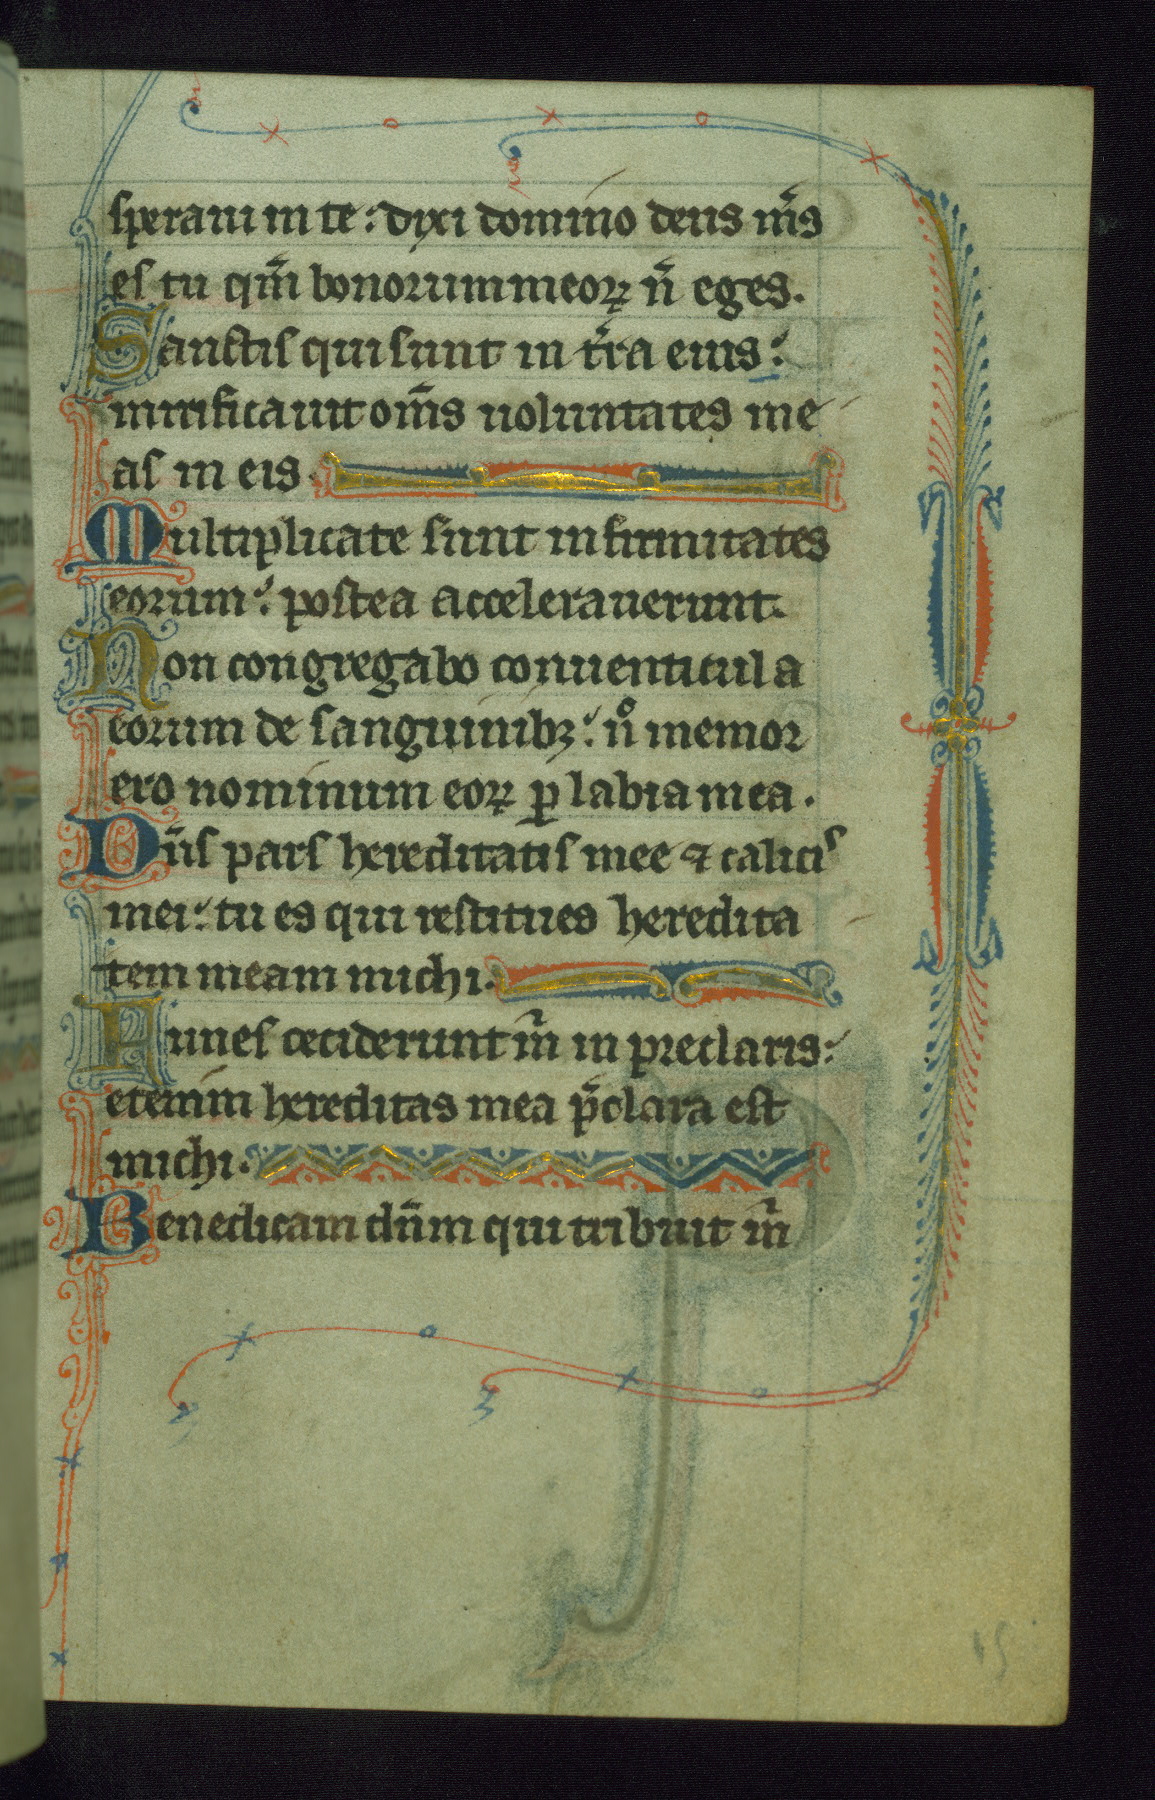 speraui in te: dixi domino deus m̄s
es tu qm̄ bonorum meoꝝ n̄ eges.
Sanctis qui sunt in tr̄a eius:
mirificauit om̄s uoluntates me
as in eis.
Multiplicate sunt infirmitates
eorum: postea accelerauerunt.
Non congregabo conuenticula
eorum de sanguinibꝫ: nͦ memor
ero nominum eoꝝ ꝑ labia mea.
Dn̄s pars hereditatis mee ⁊ calicis
mei: tu es qui restitues heredita
tem meam michi.
Funes ceciderunt m̄ in preclaris:
etenim hereditas mea p̄clara est
michi.
Benedicam dn̄m qui tribuit m̄
15